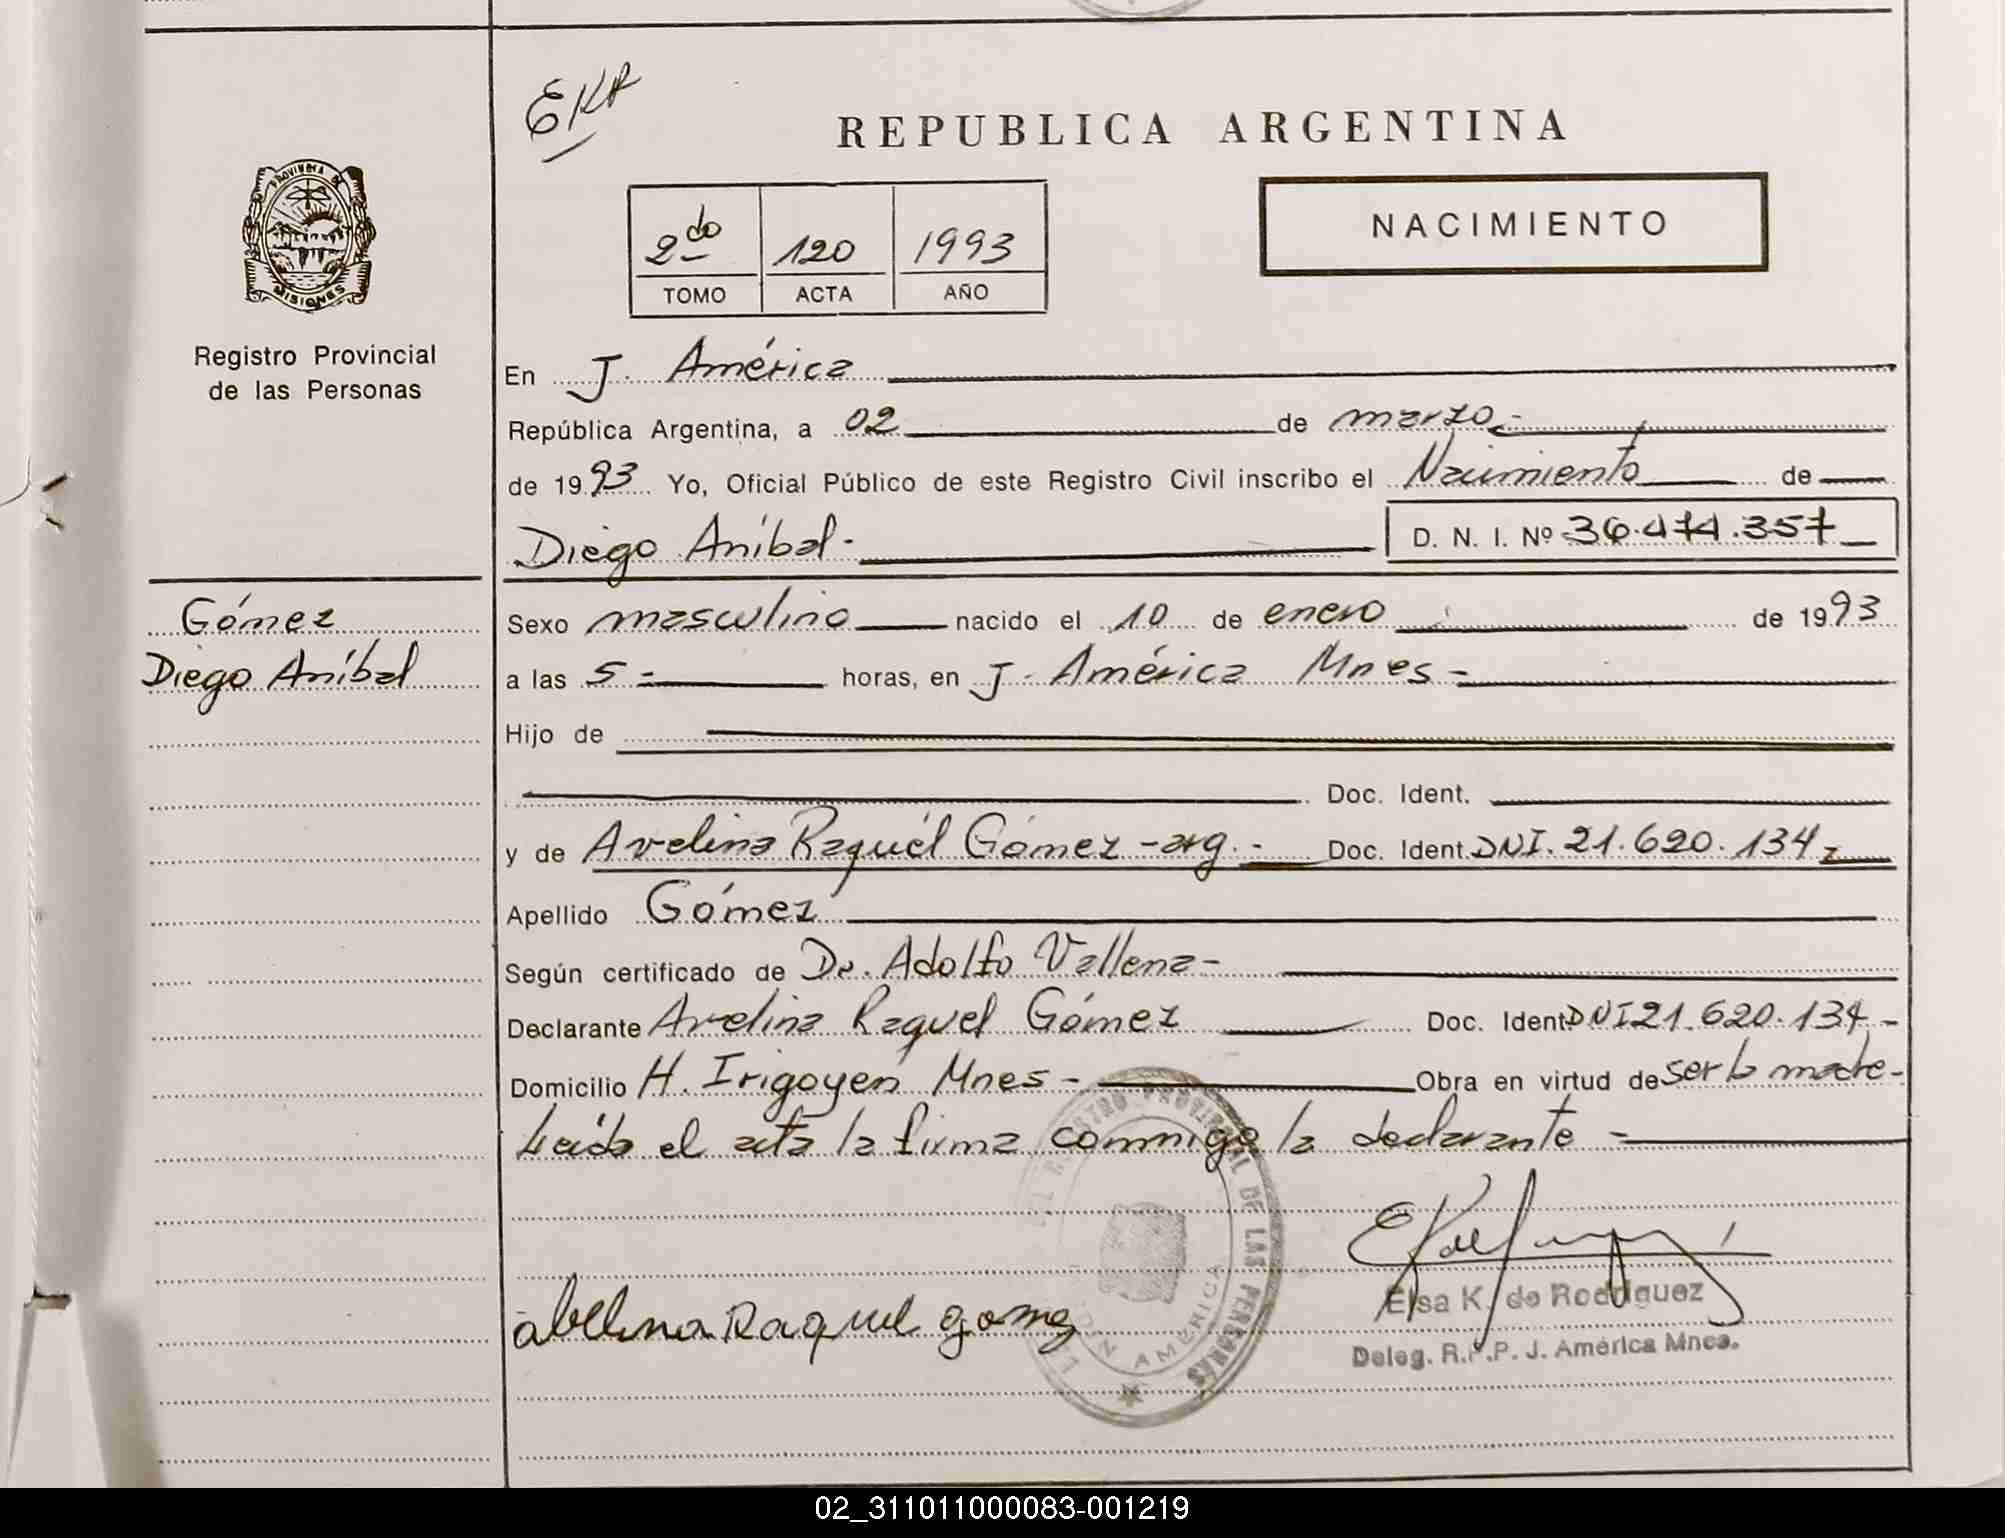 EKR
REPUBLICA ARGENTINA
PROVINCIA DE
MISIONES
2do 120 1993
TOMO ACTA AÑO
NACIMIENTO
Registro Provincial
de las Personas
En J. América
República Argentina, a 02 de marzo
de 1993 Yo, Oficial Público de este Registro Civil inscribo el Nacimiento de
Diego Aníbal.
D. N. I. Nº 36.474.357
Gómez
Diego Aníbal
Sexo masculino nacido el 10 de enero de 1993
a las 5 horas, en J. América Mnes
Hijo de
Doc. Ident.
y de Avelina Raquél Gómez - arg. - Doc. Ident. DNI. 21.620.134
Apellido Gómez
Según certificado de Dr. Adolfo Vallena
Declarante Avelina Raquel Gómez Doc. Ident. DNI 21.620.134
Domicilio H. Irigoyen Mnes - Obra en virtud de ser la madre -
Leída el acta la firma conmigo la declarante
abelina Raquel gomez
REGISTRO PROVINCIAL DE LAS PERSONAS
JARDIN AMERICA
Elsa K. de Rodriguez
Deleg. R.P.P. J. América Mnes.
02_311011000083-001219